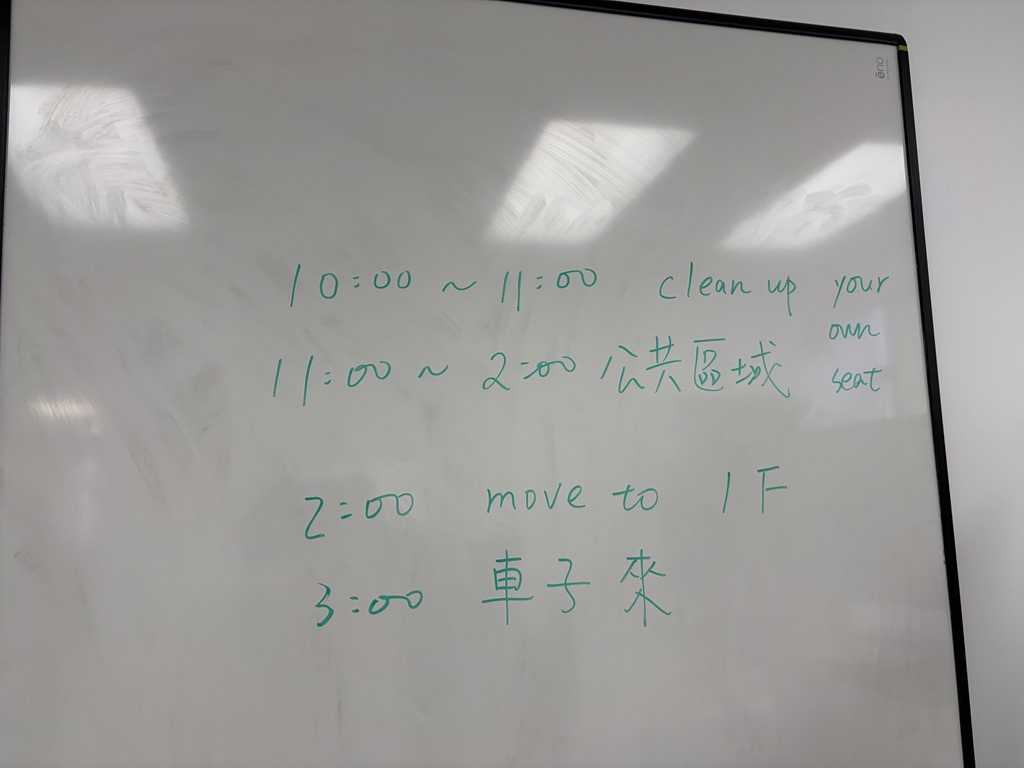 ēno
10:00 ~ 11:00 clean up your own seat
11:00 ~ 2:00 公共區域
2:00 move to 1F
3:00 車子來